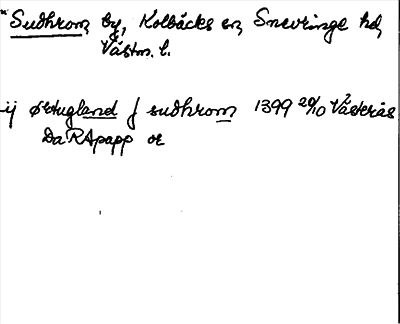 *Sudhrom, by, Kolbäcks sn, Snevringe hd,
Västm. l.
ij örtugland j sudhrom 1399 20/10 Västerås
DaRApapp or